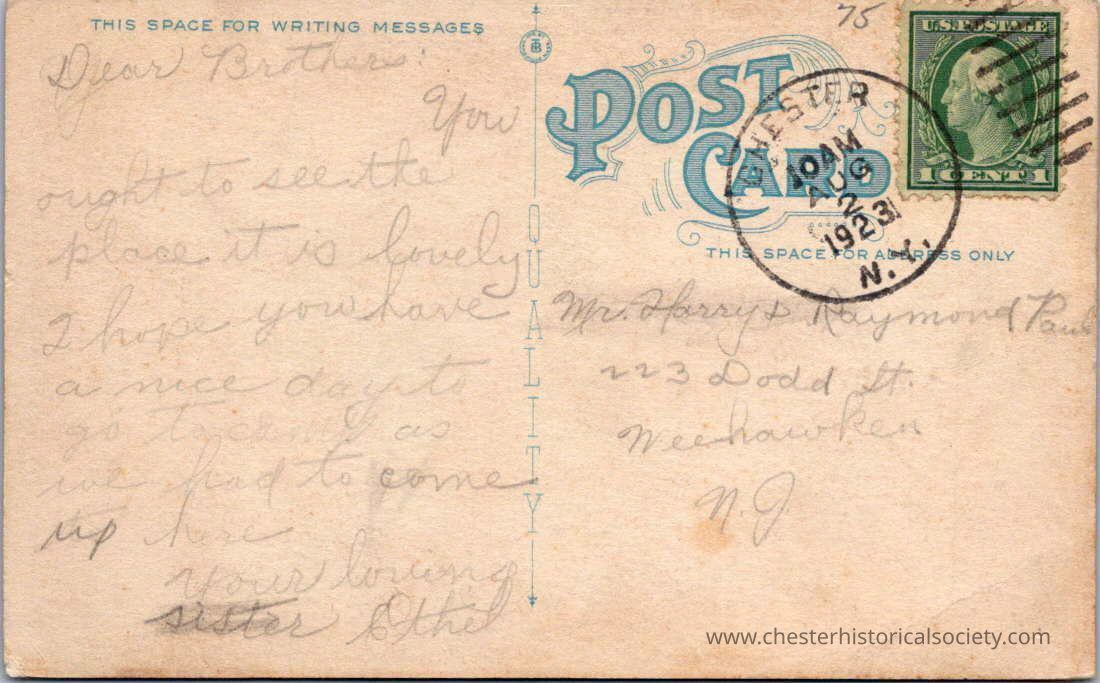 THIS SPACE FOR WRITING MESSAGES
Dear Brothers:
You
ought to see the
place it is lovely
I hope you have
a nice day to
go to camp as
we had to come
up here
your loving
sister Ethel
QUALITY
75
POST
CARD
U.S. POSTAGE
1 CENT 1
CHESTER
10 AM
AUG
2
1923
N.Y.
THIS SPACE FOR ADDRESS ONLY
Mr. Harry & Raymond
223 Dodd St.
Weehawken
N.J.
www.chesterhistoricalsociety.com